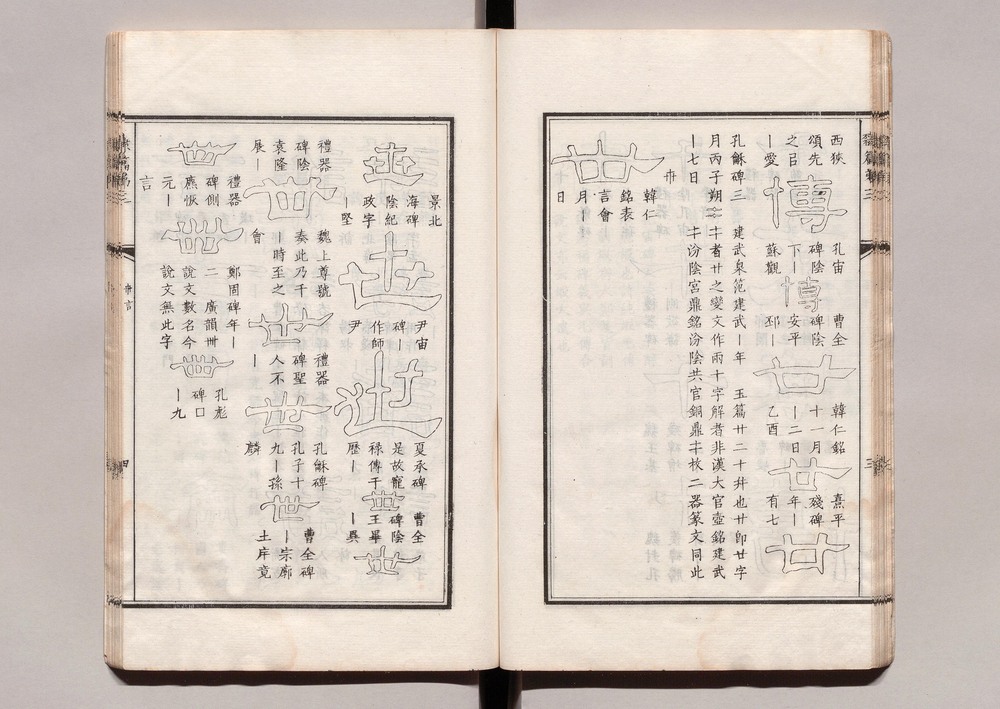 西狹
頌先
之㠯
｜愛
博
孔宙
碑陰
下｜
蘇觀
博
曹全
碑陰
安平
｜邳
廿
韓仁銘
十一月
｜二日
乙酉
廿
熹平
殘碑
年｜
有七
廿
孔龢碑三
月丙子朔
｜七日
建武泉范建武｜年 玉篇廿二十并也廿卽廿字
者廿之變文作兩十字解者非漢大官壺銘建武
汾陰宮鼎銘汾陰共官銅鼎 枚二器篆文同此
卅
韓仁
銘表
言會
月｜
日
世
景北
海碑
陰紀
政字
｜堅
世
尹宙
碑｜
作師
尹
迣
夏承碑
是故寵
祿傳于
歷｜
世
曹全
碑陰
王畢
｜異
世
禮器
碑陰
袁隆
展｜
世
魏上尊號
奏此乃千
｜時至之
會
世
禮器
碑聖
人不
｜
世
孔龢碑
九｜孫
孔子十
麟
世
曹全碑
｜宗廓
土庤竟
世
禮器
碑側
應恢
元｜
言
卌
鄭固碑年｜
二 廣韻卌
說文數名今
說文無此字
卌
孔彪
碑□
｜九